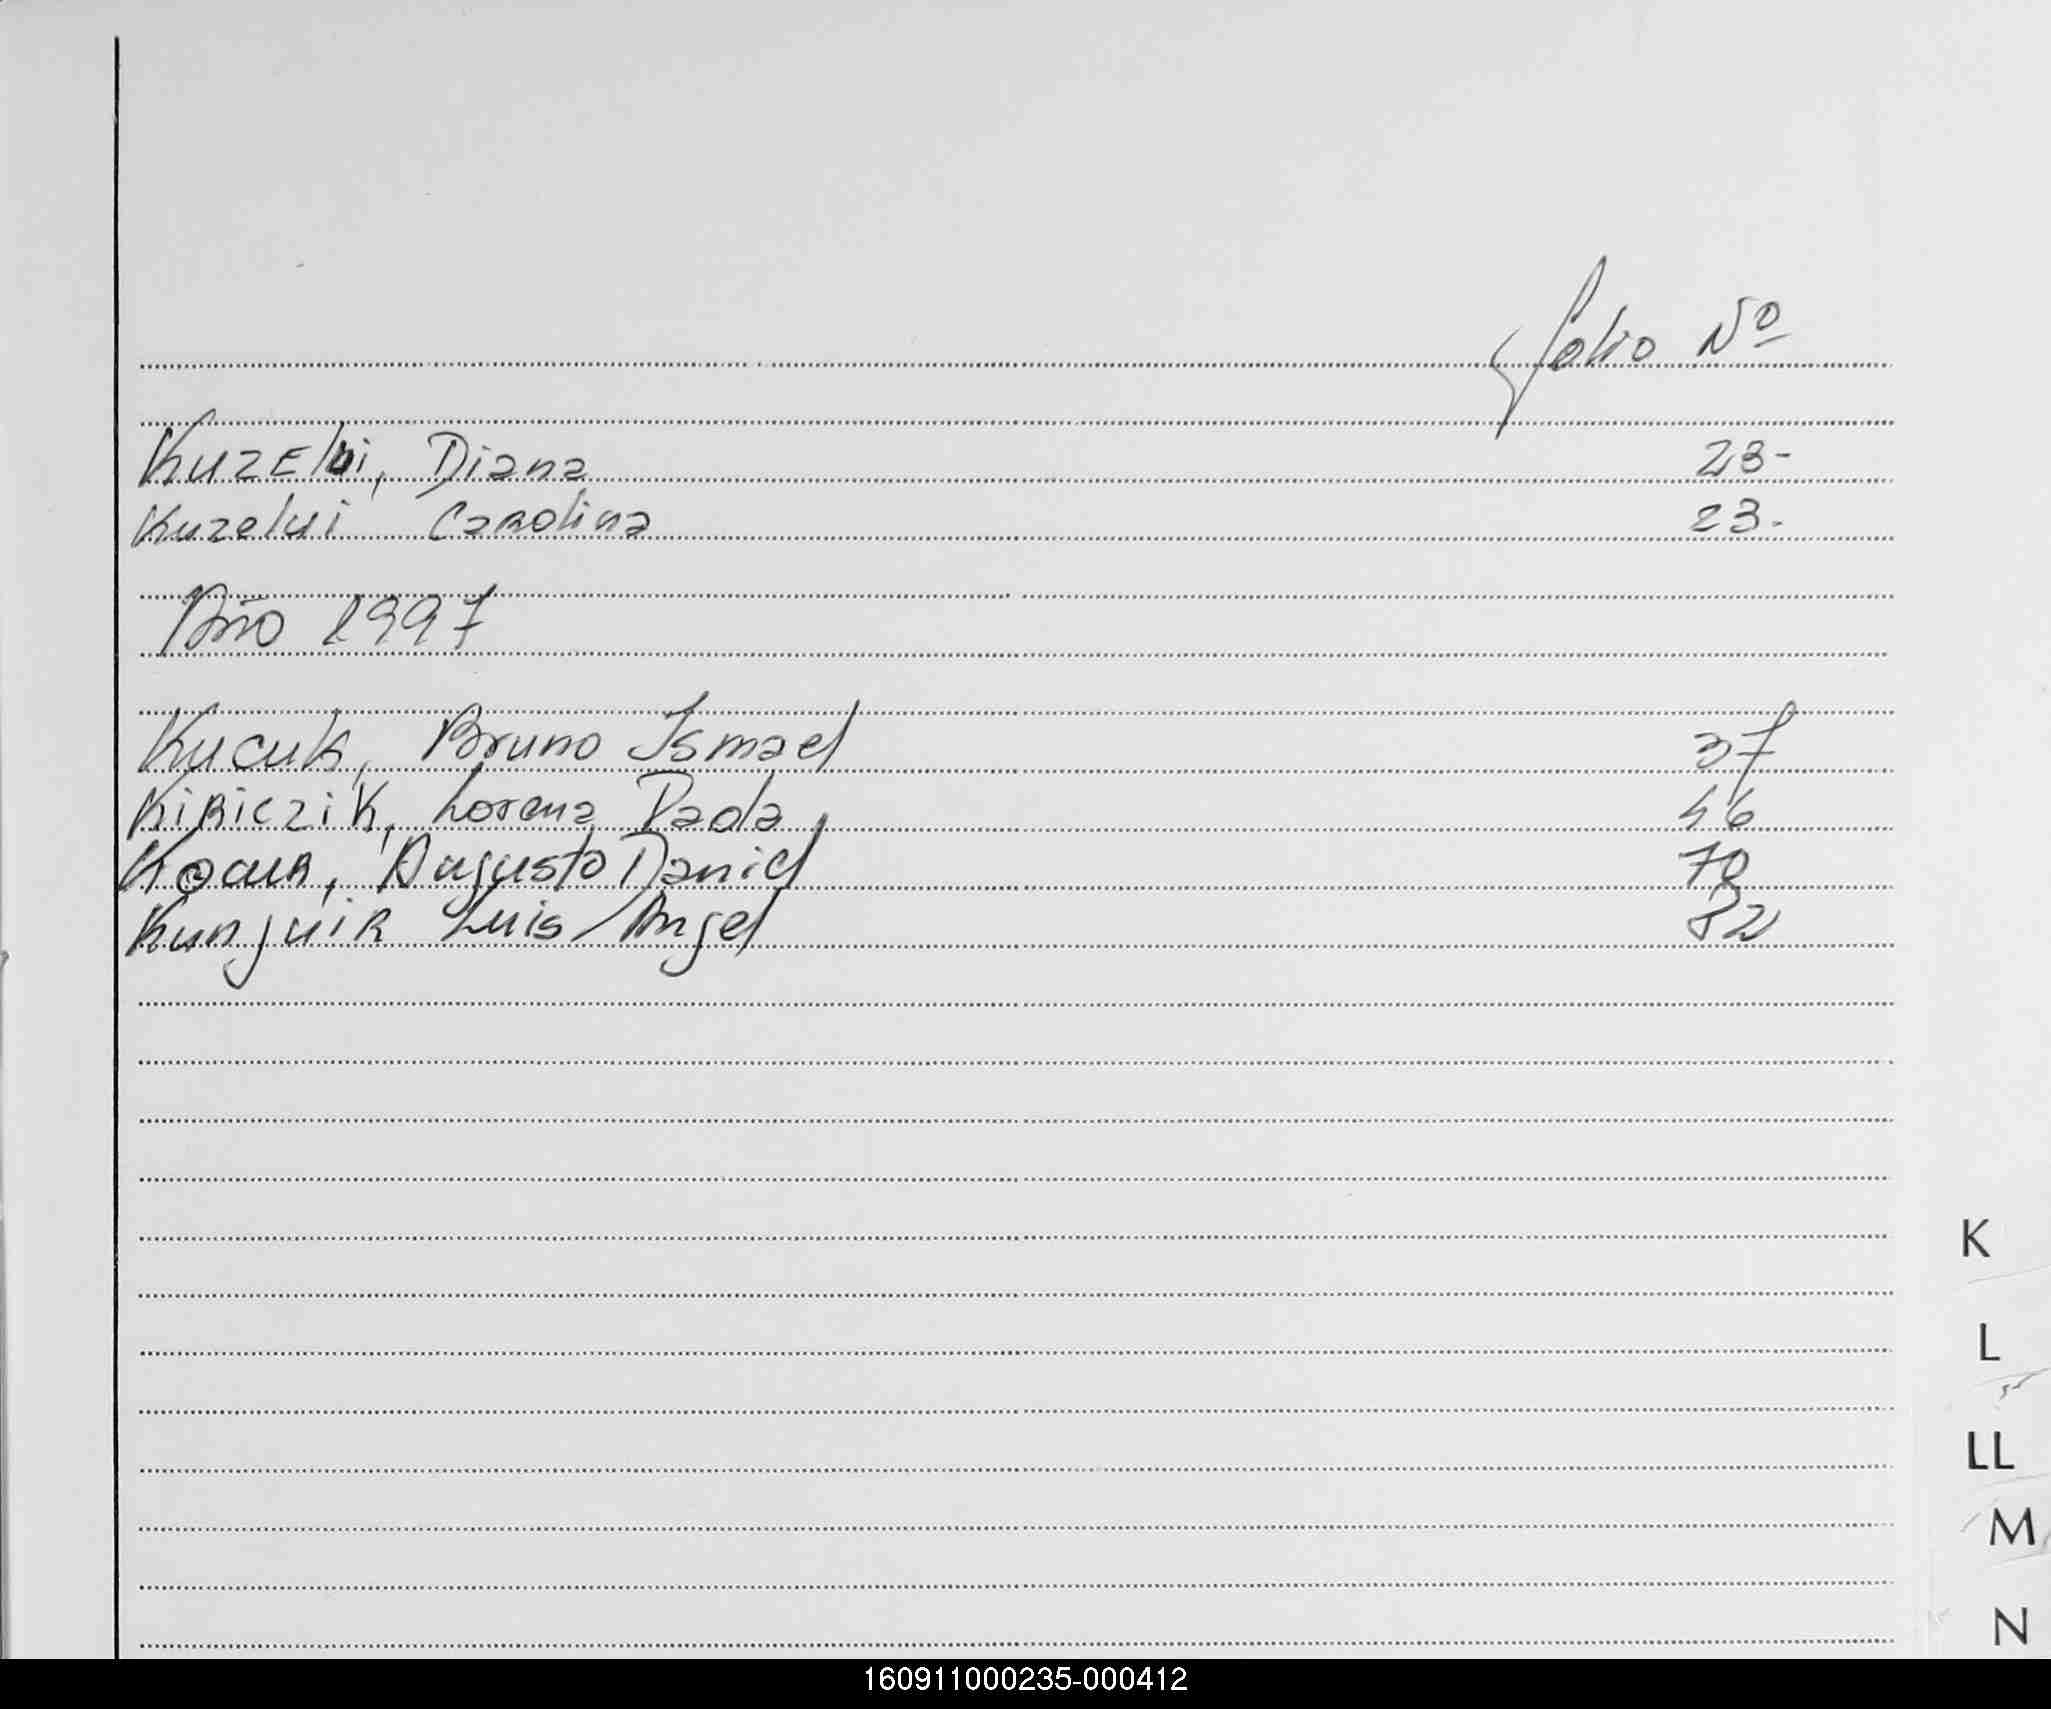 folio Nº
Kuzelui, Diana 23-
Kuzelui Carolina 23-
Año 1997
Kucuk, Bruno Ismael 37
KiRiczik, Lorena Paola 46
Augusto Daniel 70
Luis Angel 82
K
L
LL
M
N
160911000235-000412